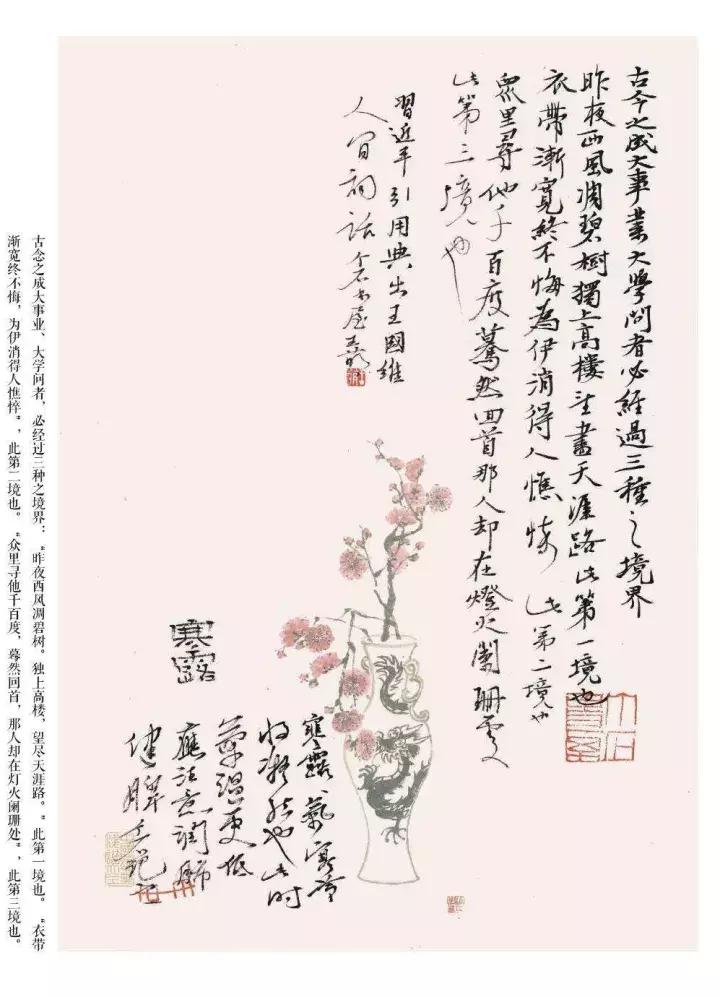 古今之成大事業大學問者必經過三種之境界
昨夜西風凋碧樹獨上高樓望盡天涯路此第一境也
衣帶漸寬終不悔為伊消得人憔悴此第二境也
眾里尋他千百度驀然回首那人却在燈火闌珊處
此第三境也
習近平引用典出王國維
人间詞話
寒露
寒露氣寒冷
將凝結也此時
氣溫更低
應注意潤肺
健脾
古念之成大事业、大学问者，必经过三种之境界：“昨夜西风凋碧树。独上高楼，望尽天涯路。”此第一境也。“衣带
渐宽终不悔，为伊消得人憔悴”，此第二境也。“众里寻他千百度，蓦然回首，那人却在灯火阑珊处”，此第三境也。